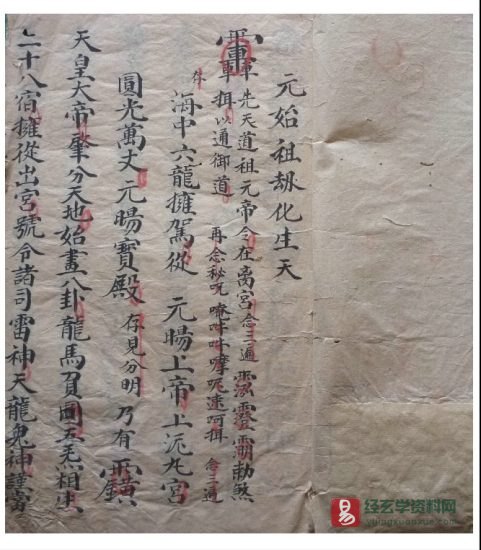 元始祖劫化生天
先天道祖元帝令在离宮 念三遍 勅煞
揖以通御道 再念秘咒 唵吽吽 念三遍
存 海中六龍擁駕從 元暘上帝上泥丸宮
圓光萬丈元暘寶殿 存見分明 乃有
天皇大帝肇分天地始畫八卦龍馬負圖五炁相生
二十八宿擁從出宮號令諸司雷神天龍鬼神謹當
经玄学资料网
yijingxuanxue.com